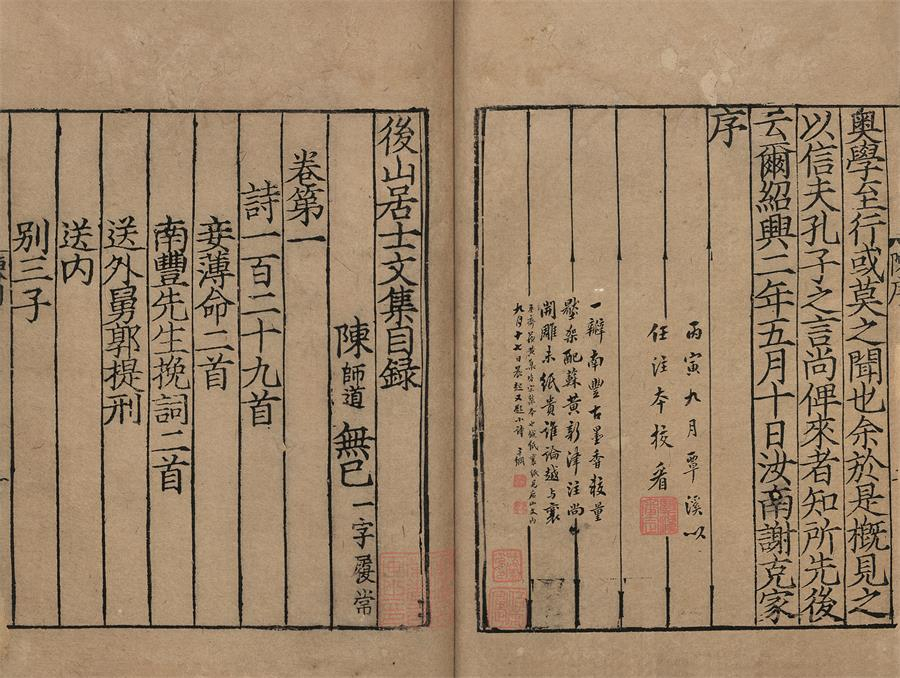 奧學至行或莫之聞也余於是槪見之
以信夫孔子之言尚俾來者知所先後
云爾紹興二年五月十日汝南謝克家
序
丙寅九月覃溪以
任注本校看
一瓣南豐古墨香殘量
壁架配蘇黃新津注尚
開雕未紙貴誰論越与襄
九月十七日晨起又題小詩
後山居士文集目錄
陳師道 無己 一字履常
卷第一
詩一百二十九首
妾薄命二首
南豐先生挽詞二首
送外舅郭提刑
送内
别三子